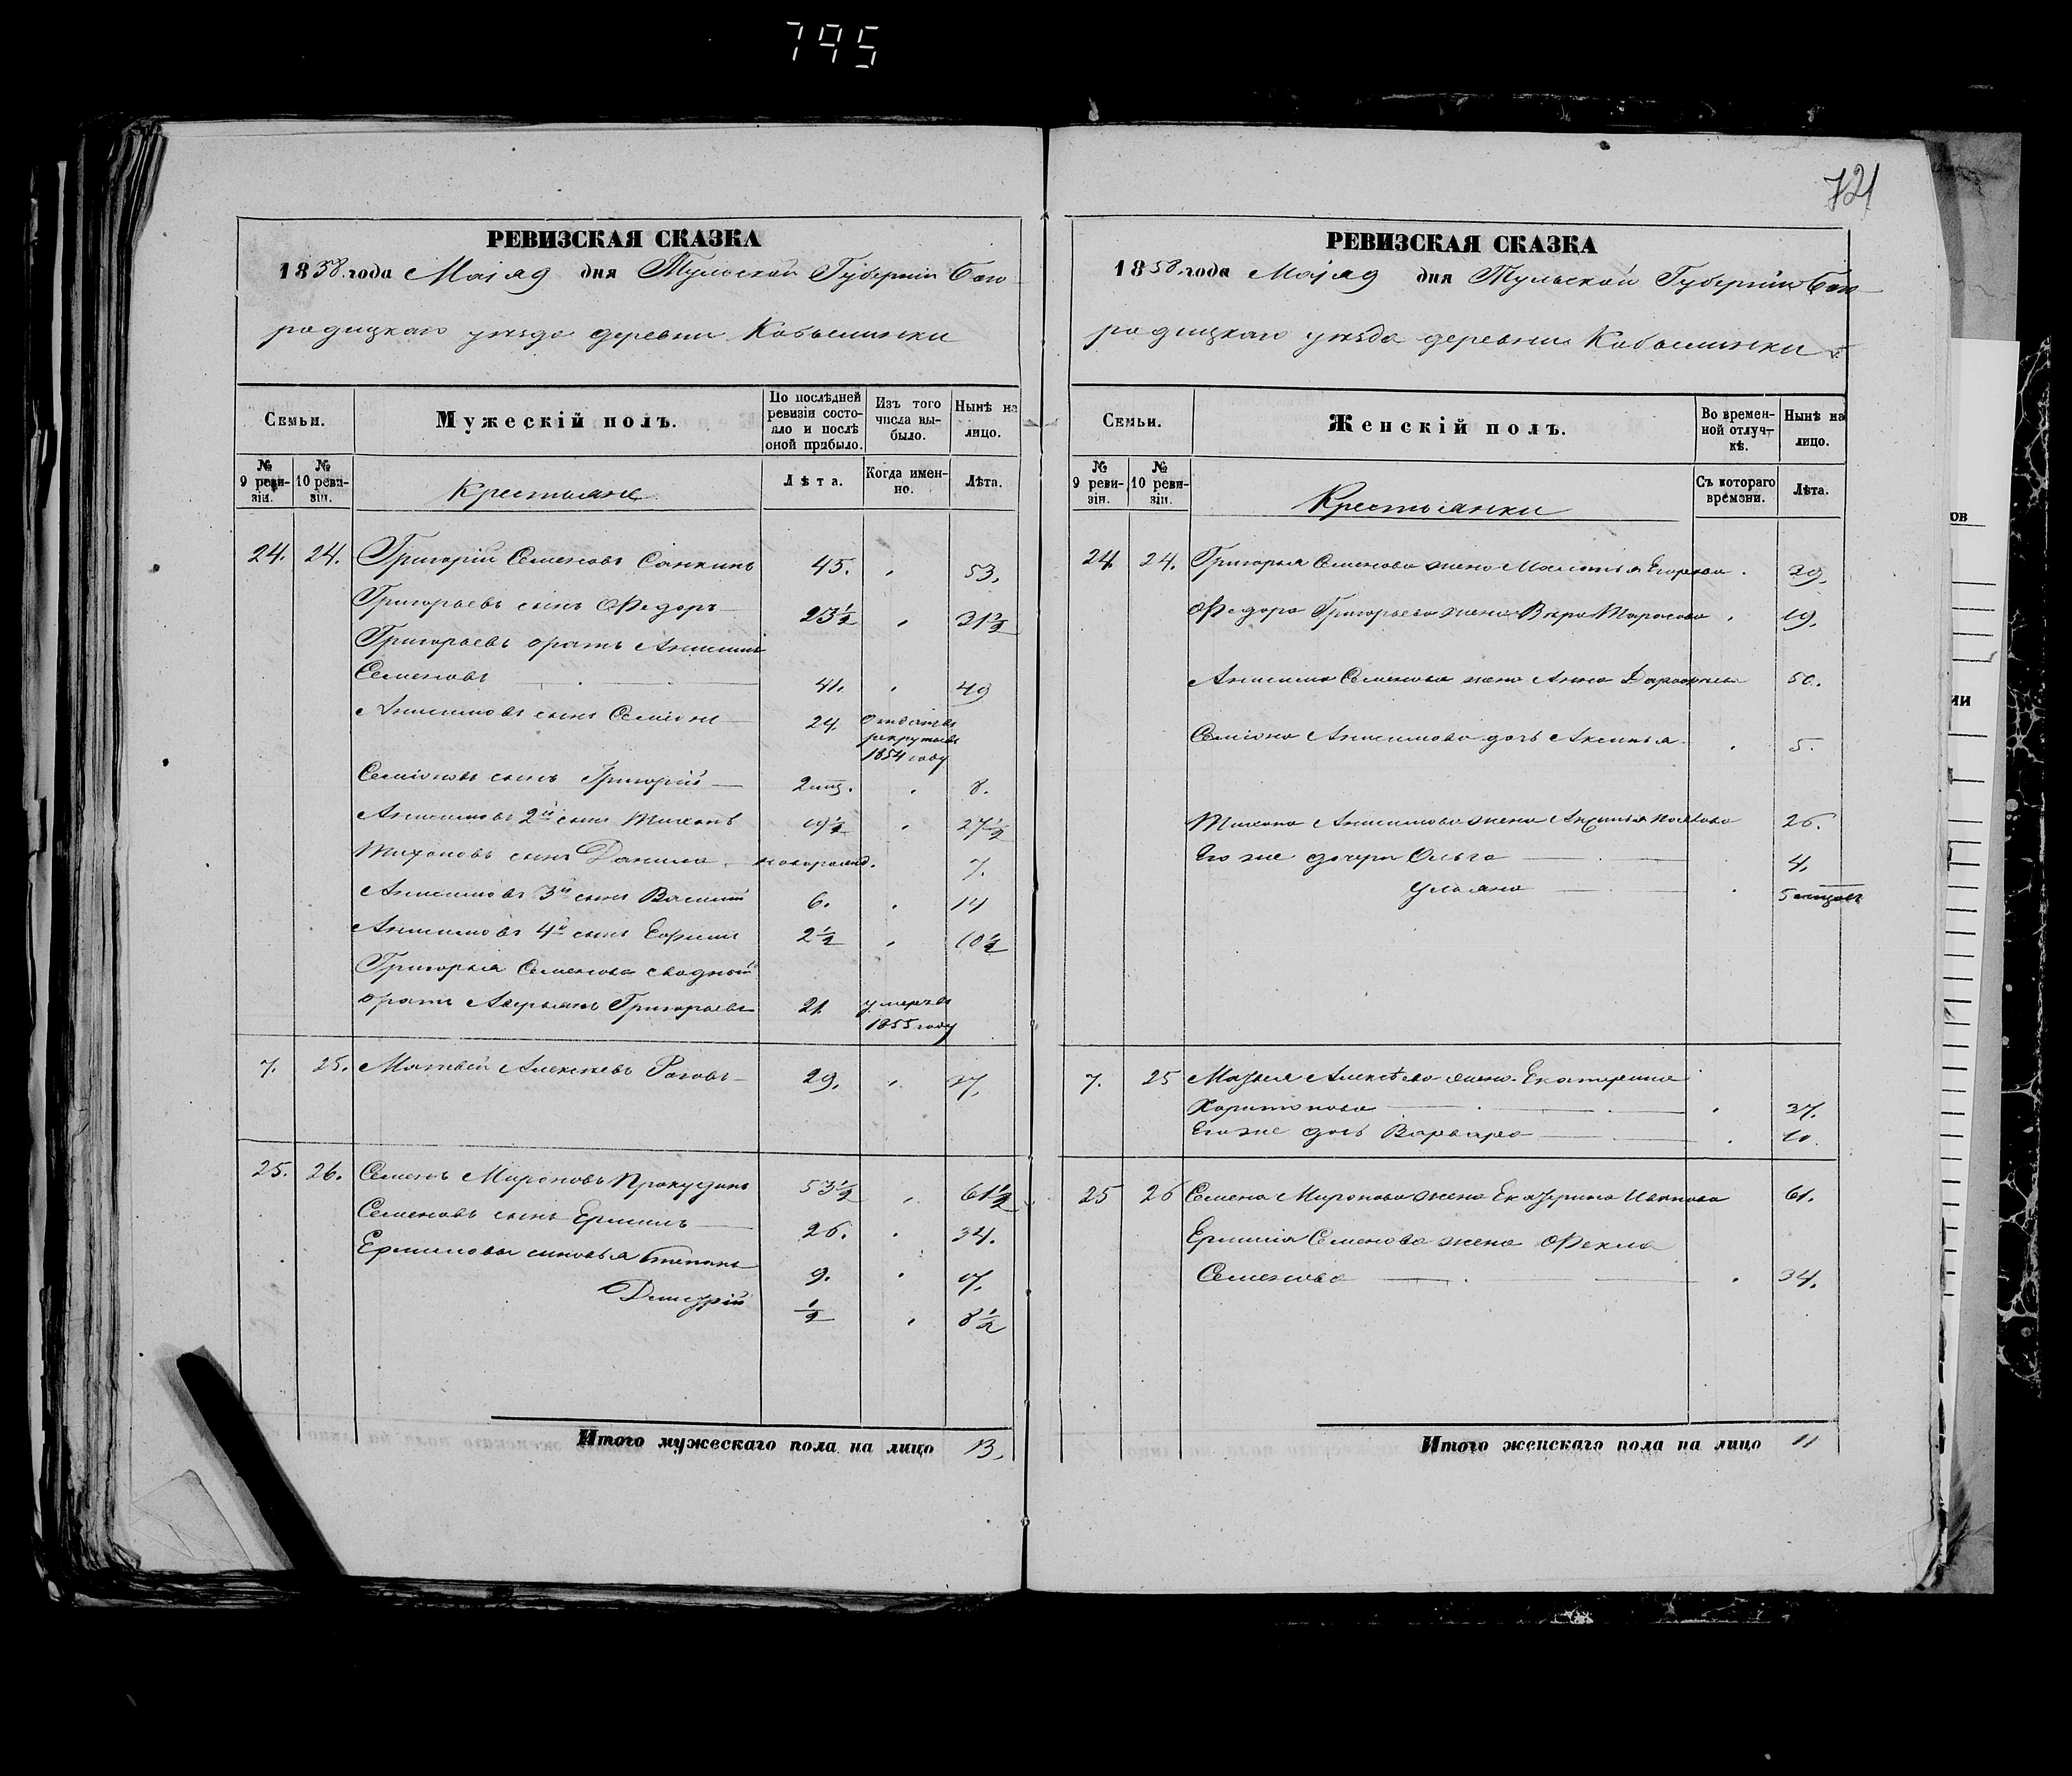 795
721
РЕВИЗСКАЯ СКАЗКА
1858 года Маія 9 дня Тульской Губерніи Бого
родицкаго уѣзда деревни Кобылинки
Семьи.
Мужескій полъ.
По послѣдней ревизіи состояло и послѣ оной прибыло.
Изъ того числа выбыло.
Нынѣ на лицо.
№ 9 ревизіи.
№ 10 ревизіи.
Крестьяне
Лѣта.
Когда именно.
Лѣта.
24. 24. Григорій Семеновъ Санкинъ 45. 53.
Григорьевъ сынъ Ѳедоръ 23½ 31½
Григорьевъ братъ Анисимъ
Семеновъ 41. 49
Анисимовъ сынъ Семіонъ 24. отданъ въ
рекруты въ
1854 году
Семіоновъ сынъ Григорій 2 мц. 8.
Анисимовъ 2й сынъ Тихонъ 19½ 27½
Тихоновъ сынъ Данила новорожд. 7.
Анисимовъ 3й сынъ Василій 6. 14
Анисимовъ 4й сынъ Ефимъ 2½ 10½
Григорья Семенова сводный
братъ Аверьянъ Григорьевъ 21 умеръ въ
1855 году
7. 25. Матвѣй Алексѣевъ Роговъ 29. 37.
25. 26. Семенъ Мироновъ Прокудинъ 53½ 61½
Семеновъ сынъ Ермилъ 26. 34.
Ермиловы сыновья Степанъ 9. 17.
Дмитрій ½ 8½
Итого мужескаго пола на лицо 13.
РЕВИЗСКАЯ СКАЗКА
1858 года Маія 9 дня Тульской Губерніи Бого
родицкаго уѣзда деревни Кобылинки
Семьи.
Женскій полъ.
Во временной отлучкѣ.
Нынѣ на лицо.
№ 9 ревизіи.
№ 10 ревизіи.
Крестьянки
Съ котораго времени.
Лѣта.
24. 24. Григорья Семенова жена Егорова 39.
Ѳедора Григорьева жена Вѣра Тарасова 19.
Анисима Семенова жена Анна 50.
Семіона Анисимова дочь Аксинья 5.
Тихона Анисимова жена Аксинья 26.
Его же дочери Ольга 4.
Ульяна 5 мцовъ
7. 25 Матвея Алексѣева жена Екатерина
Харитонова 37.
Его же дочь Варвара 10.
25 26 Семена Миронова жена Екатерина Иванова 61.
Ермила Семенова жена Ѳекла
Семенова 34.
Итого женскаго пола на лицо 11